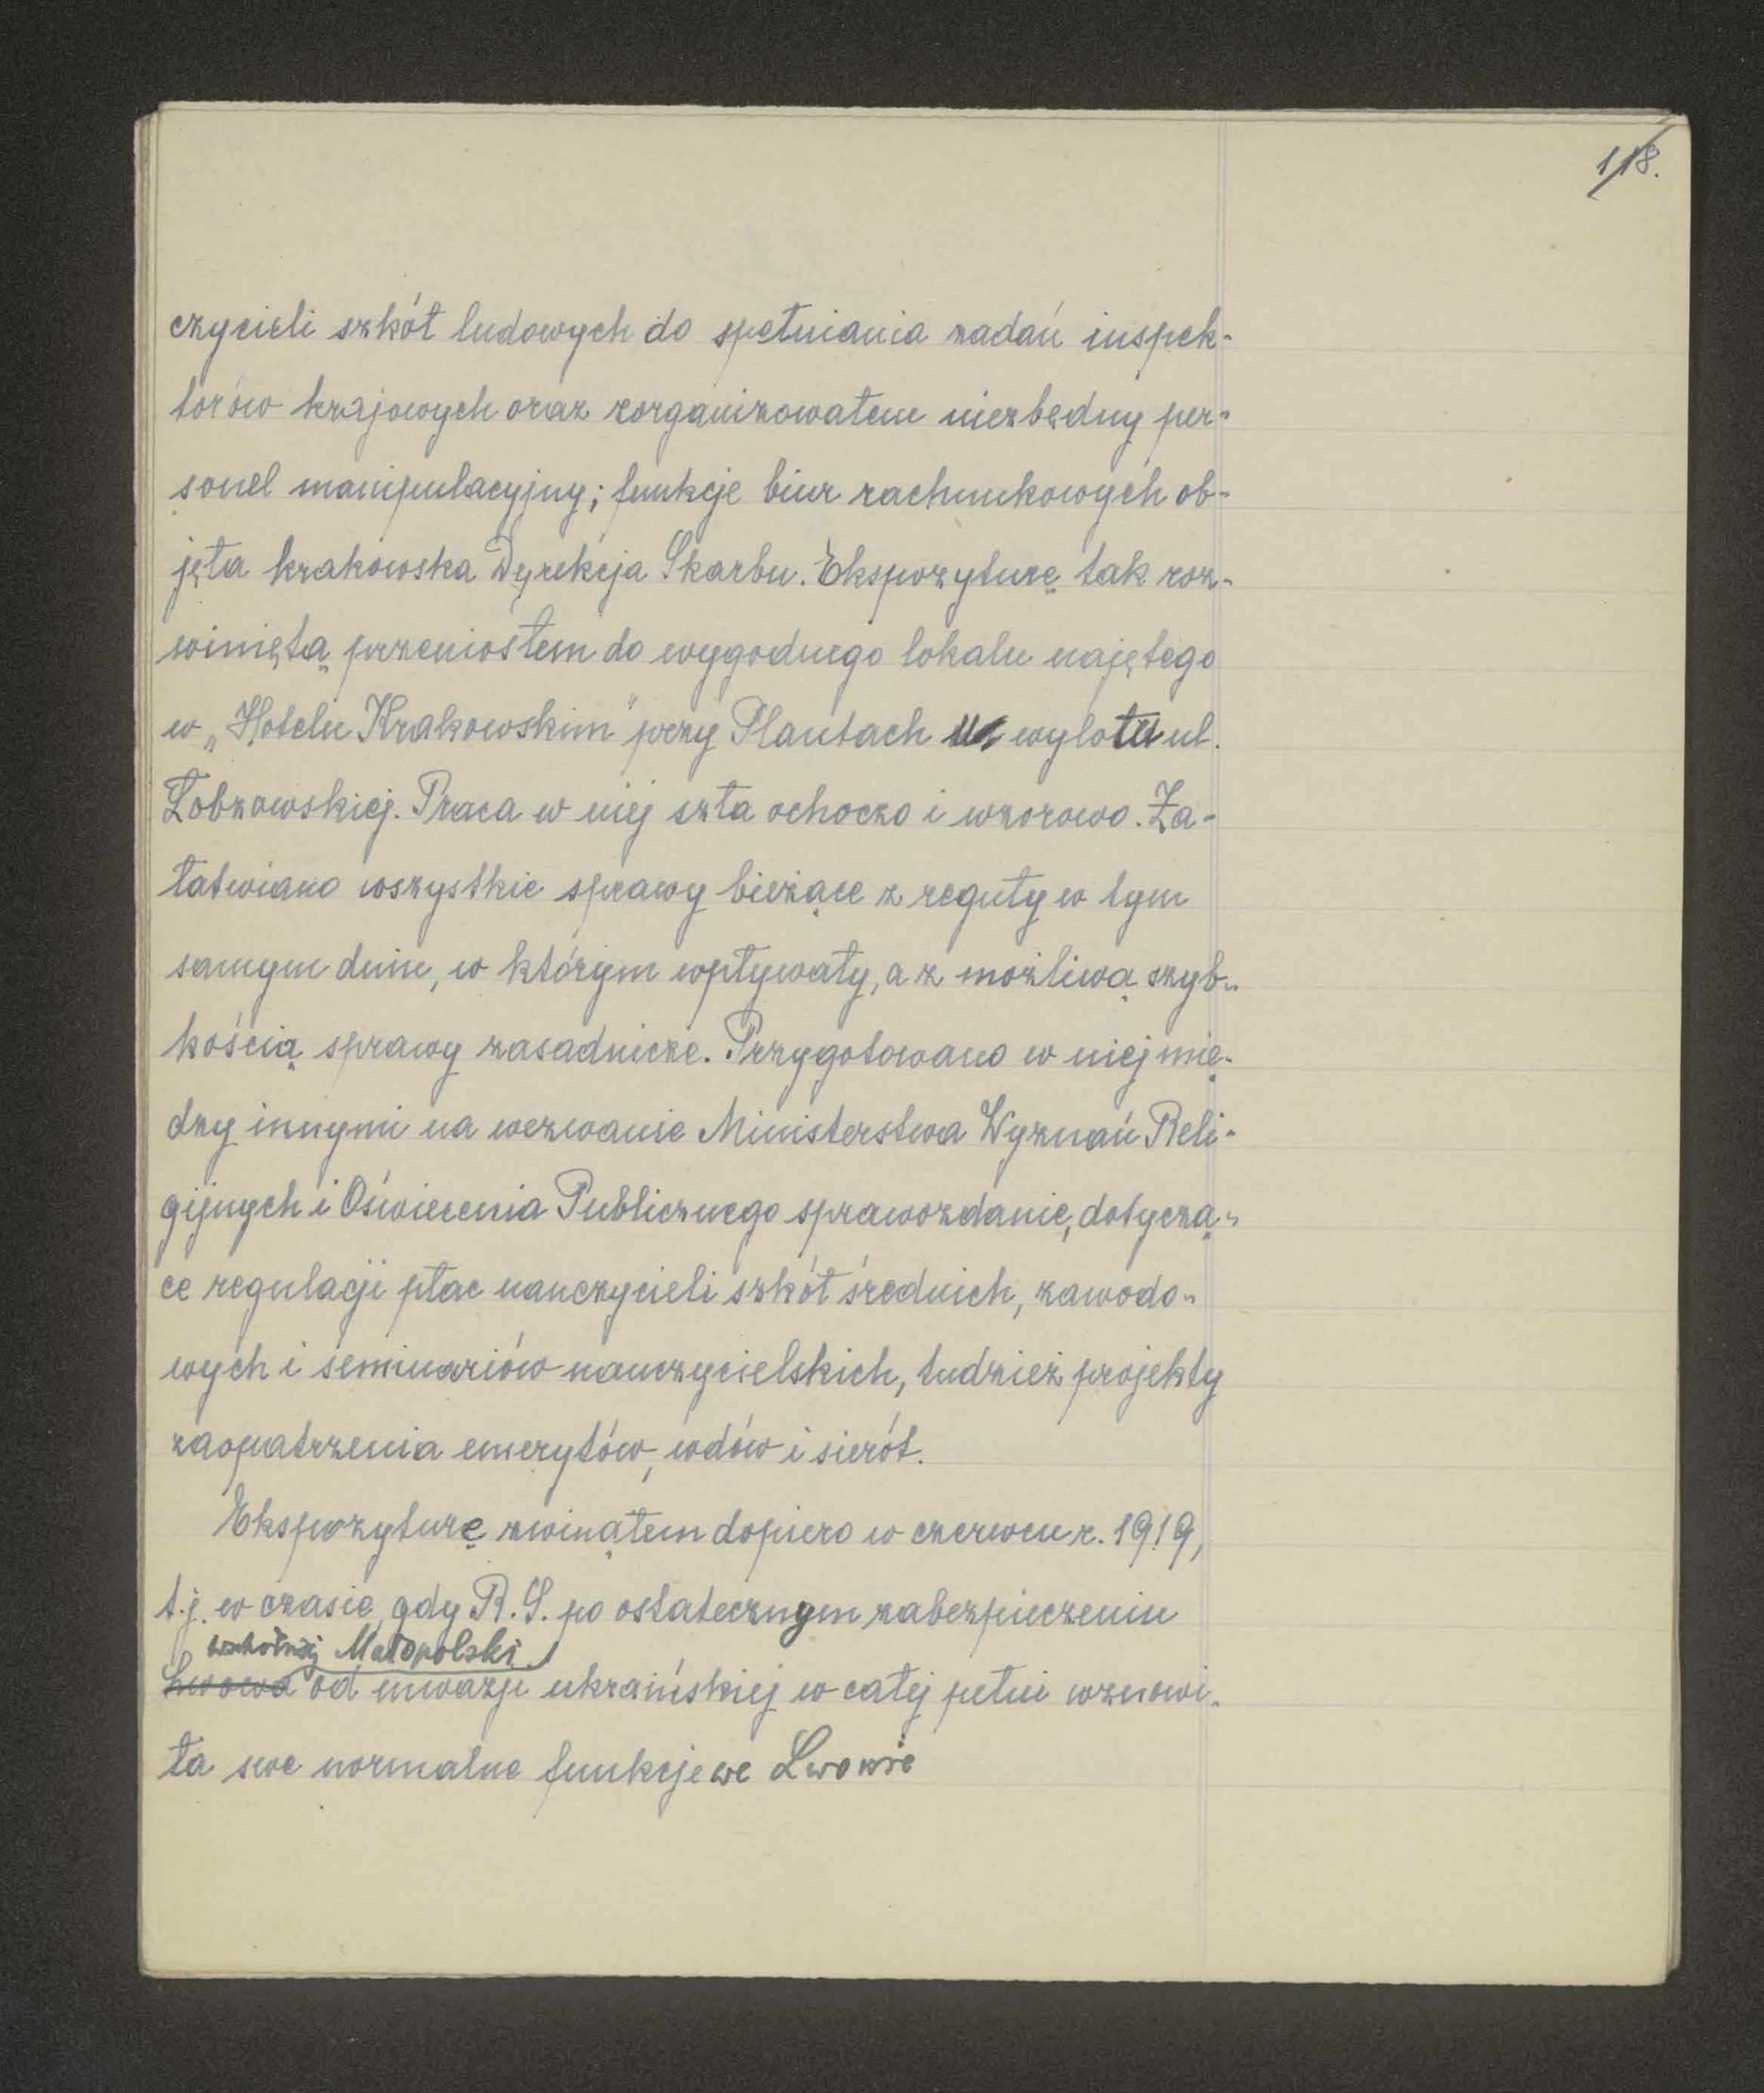 118.
czycieli szkół ludowych do spełniania zadań inspek-
torów krajowych oraz zorganizowałem niezbędny per-
sonel manipulacyjny; funkcje biur rachunkowych ob-
jęła krakowska Dyrekcja Skarbu. Ekspozyturę tak roz-
winiętą przeniosłem do wygodnego lokalu najętego
w „Hotelu Krakowskim" przy Plantach u wylotu ul.
Łobzowskiej. Praca w niej szła ochoczo i wzorowo. Za-
łatwiano wszystkie sprawy bieżące z reguły w tym
samym dniu, w którym wpływały, a z możliwą szyb-
kością sprawy zasadnicze. Przygotowano w niej mię-
dzy innymi na wezwanie Ministerstwa Wyznań Reli-
gijnych i Oświecenia Publicznego sprawozdanie, dotyczą-
ce regulacji płac nauczycieli szkół średnich, zawodo-
wych i seminariów nauczycielskich, tudzież projekty
zaopatrzenia emerytów, wdów i sierót.
Ekspozyturę zwinąłem dopiero w czerwcu r. 1919,
t.j. w czasie, gdy R. S. po ostatecznym zabezpieczeniu
wschodniej Małopolski
Lwowa od inwazji ukraińskiej w całej pełni wznowi-
ła swe normalne funkcje we Lwowie